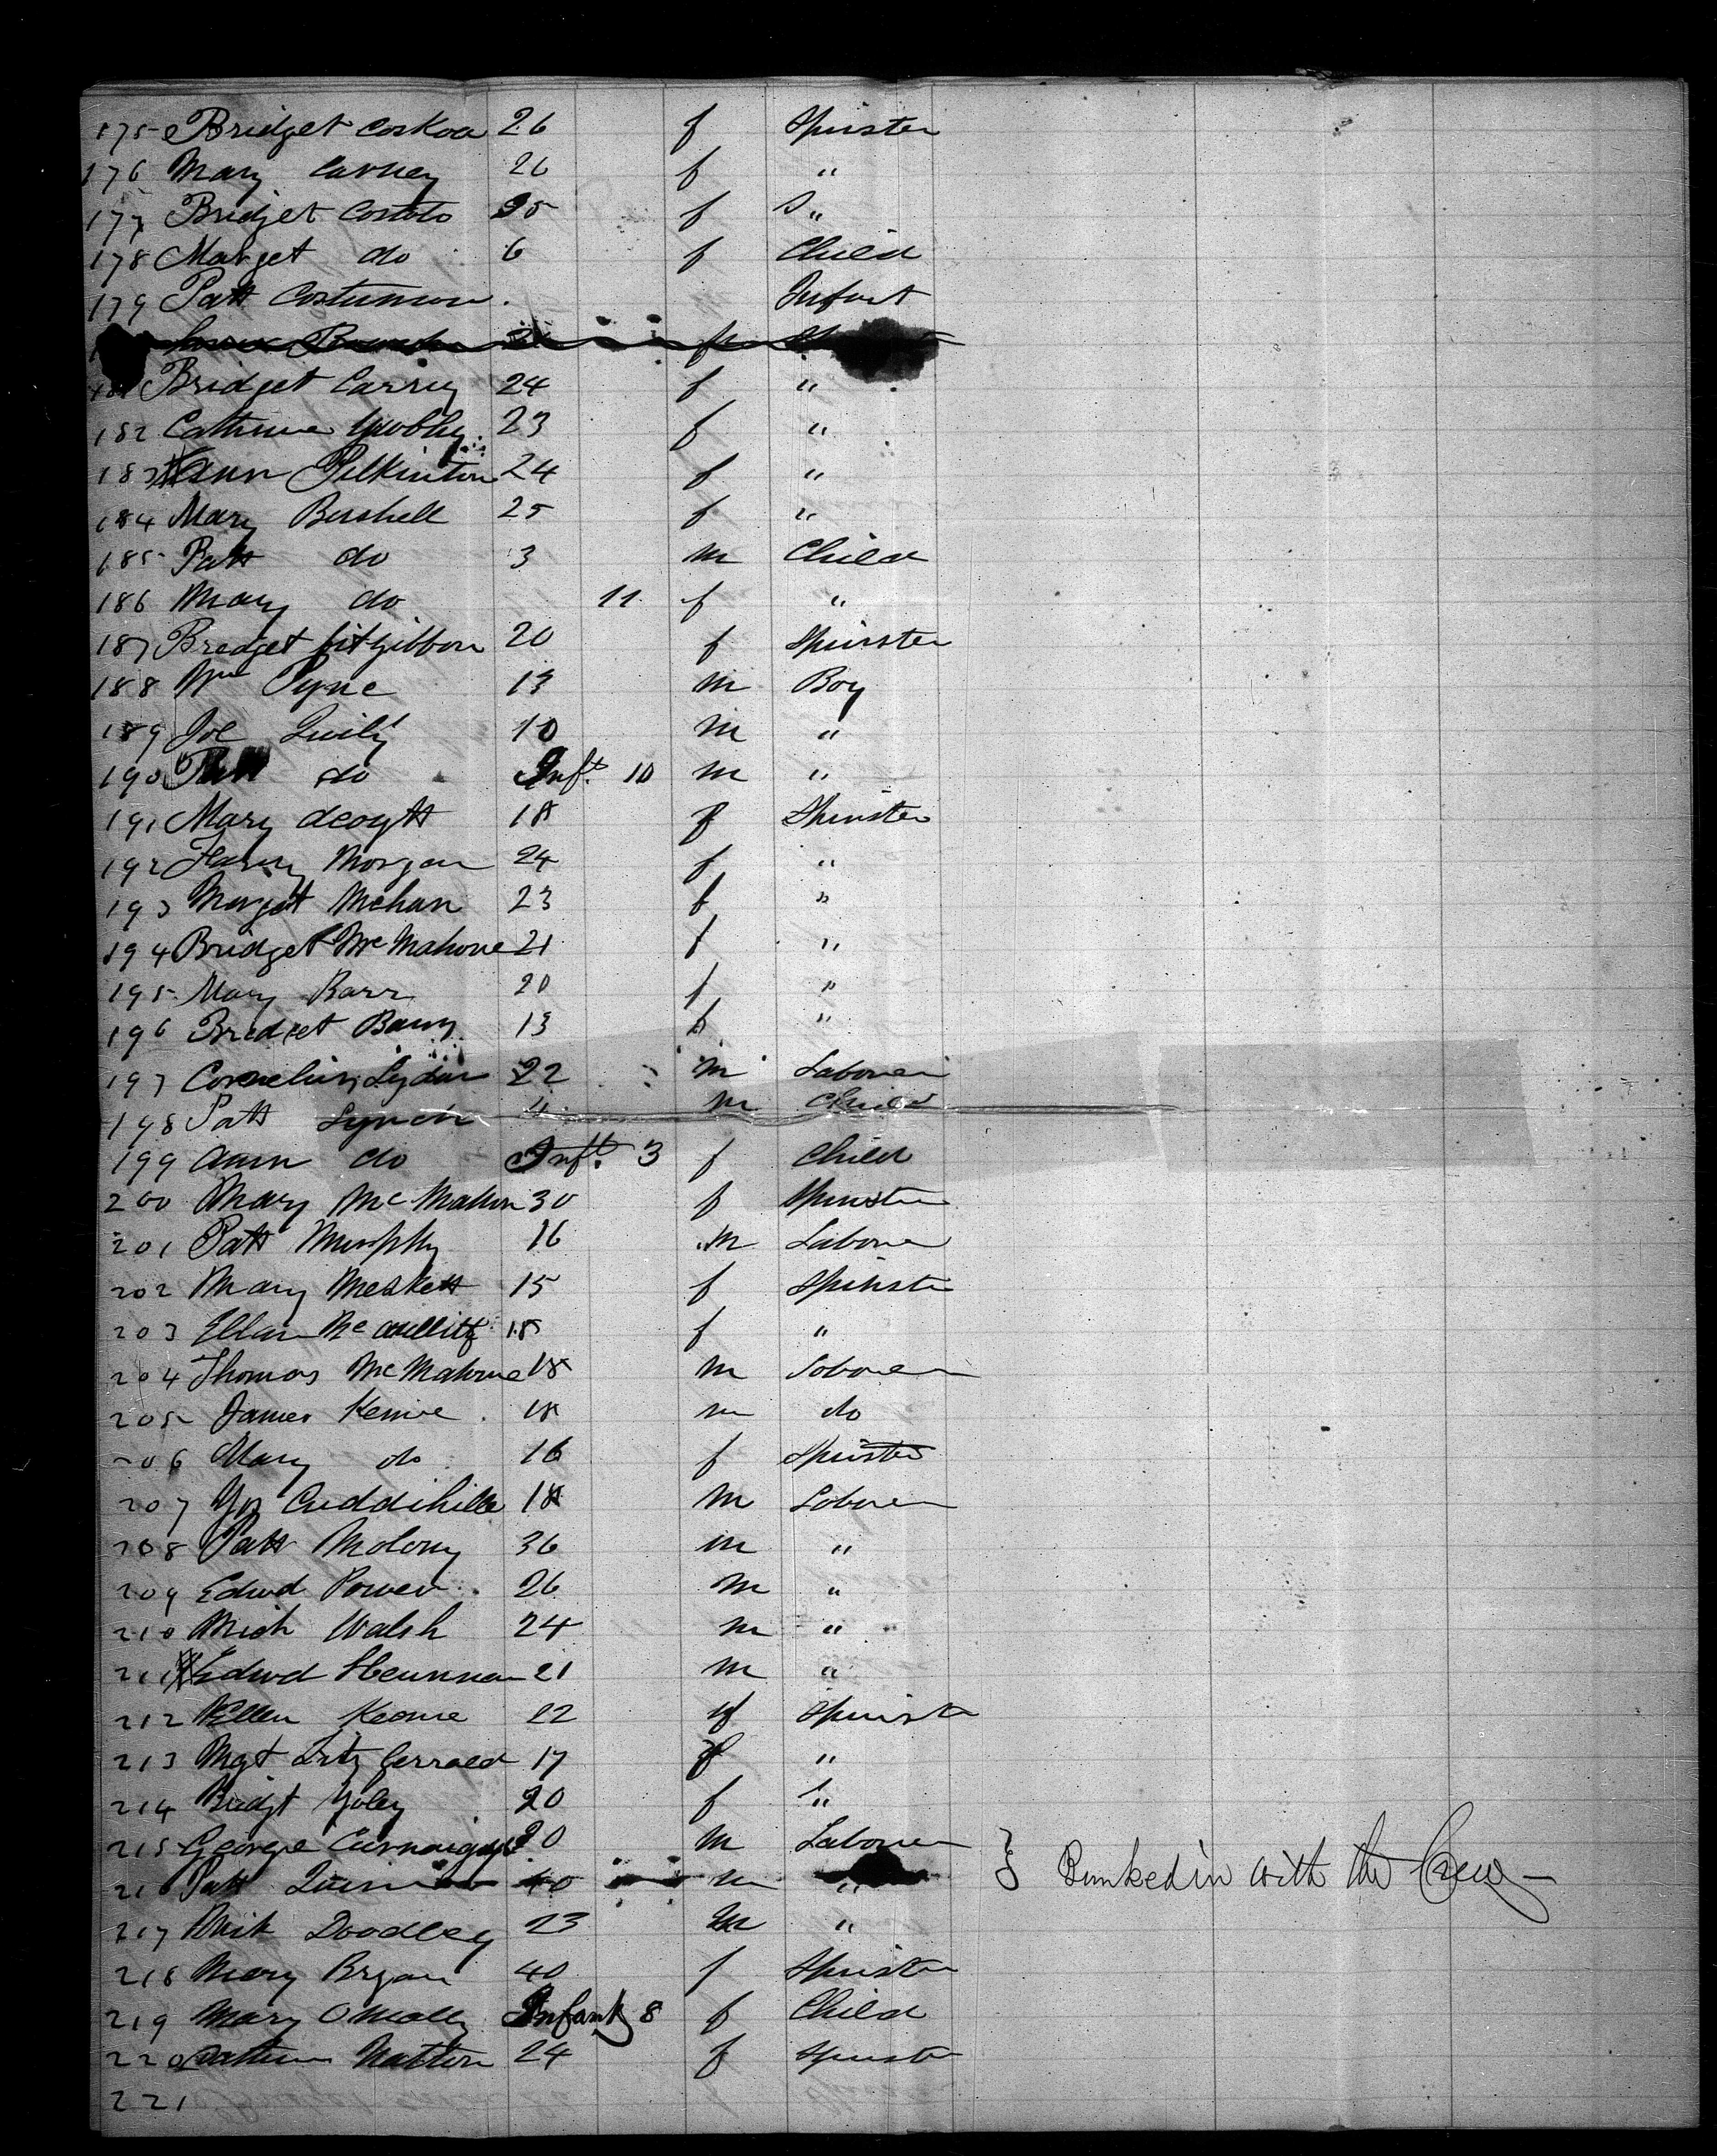 175 Bridget Coskoa 26 f Spinster
176 Mary Carney 26 f "
177 Bridget Costolo 25 f S "
178 Marget do 6 f Child
179 Patt Infant
Bridget Carry 24 f "
182 Catherine 23 f "
183 Ann Pilkinton 24 f "
184 Mary Bushell 25 f "
185 Patt do 3 m Child
186 Mary do 11 f "
187 Bredget fitzgibbon 20 f Spinster
188 Wm Pyne 13 m Boy
189 Joe Quily 10 m "
190 Patt do Inft. 10 m "
191 Mary 18 f Spinster
192 Morgan 24 f "
193 Marget Mehan 23 f "
194 Bridget McMahone 21 f "
195 Mary Barr 20 f "
196 Bredget Barry 13 f "
197 Cornelius Lydon 22 m Labourer
198 Patt Lynch 4 m Child
199 Ann do Inft. 3 f Child
200 Mary McMahon 30 f Spinster
201 Patt Murphy 16 m Labourer
202 Mary Meskett 15 f Spinster
203 Ellen 18 f "
204 Thomas McMahone 18 m Labourer
205 James Kenive 18 m do
206 Mary do 16 f Spinster
207 Cuddihille 18 m Labourer
208 Patt Molony 36 m "
209 Edwd Power 26 m "
210 Mich Walsh 24 m "
211 Edwd 21 m "
212 Ellen Keane 22 f Spinst
213 Mgt Fitz Gerrald 17 f "
214 Bridgt foley 20 f "
215 George 20 m Labourer
216 Patt 40 m " } Bunked in with the Crew
217 Mick Doodley 23 m "
218 Mary Bryan 40 f Spinster
219 Mary OMally Infant 8 f Child
220 Natton 24 f Spinst
221